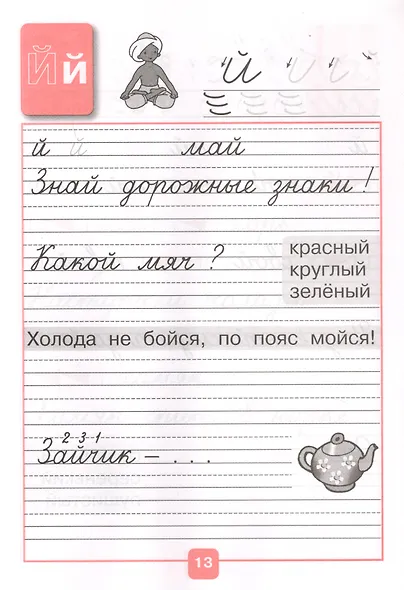 Й й
й
й й май
Знай дорожные знаки!
Какой мяч?
красный
круглый
зелёный
Холода не бойся, по пояс мойся!
2 3 1
Зайчик – . . .
13